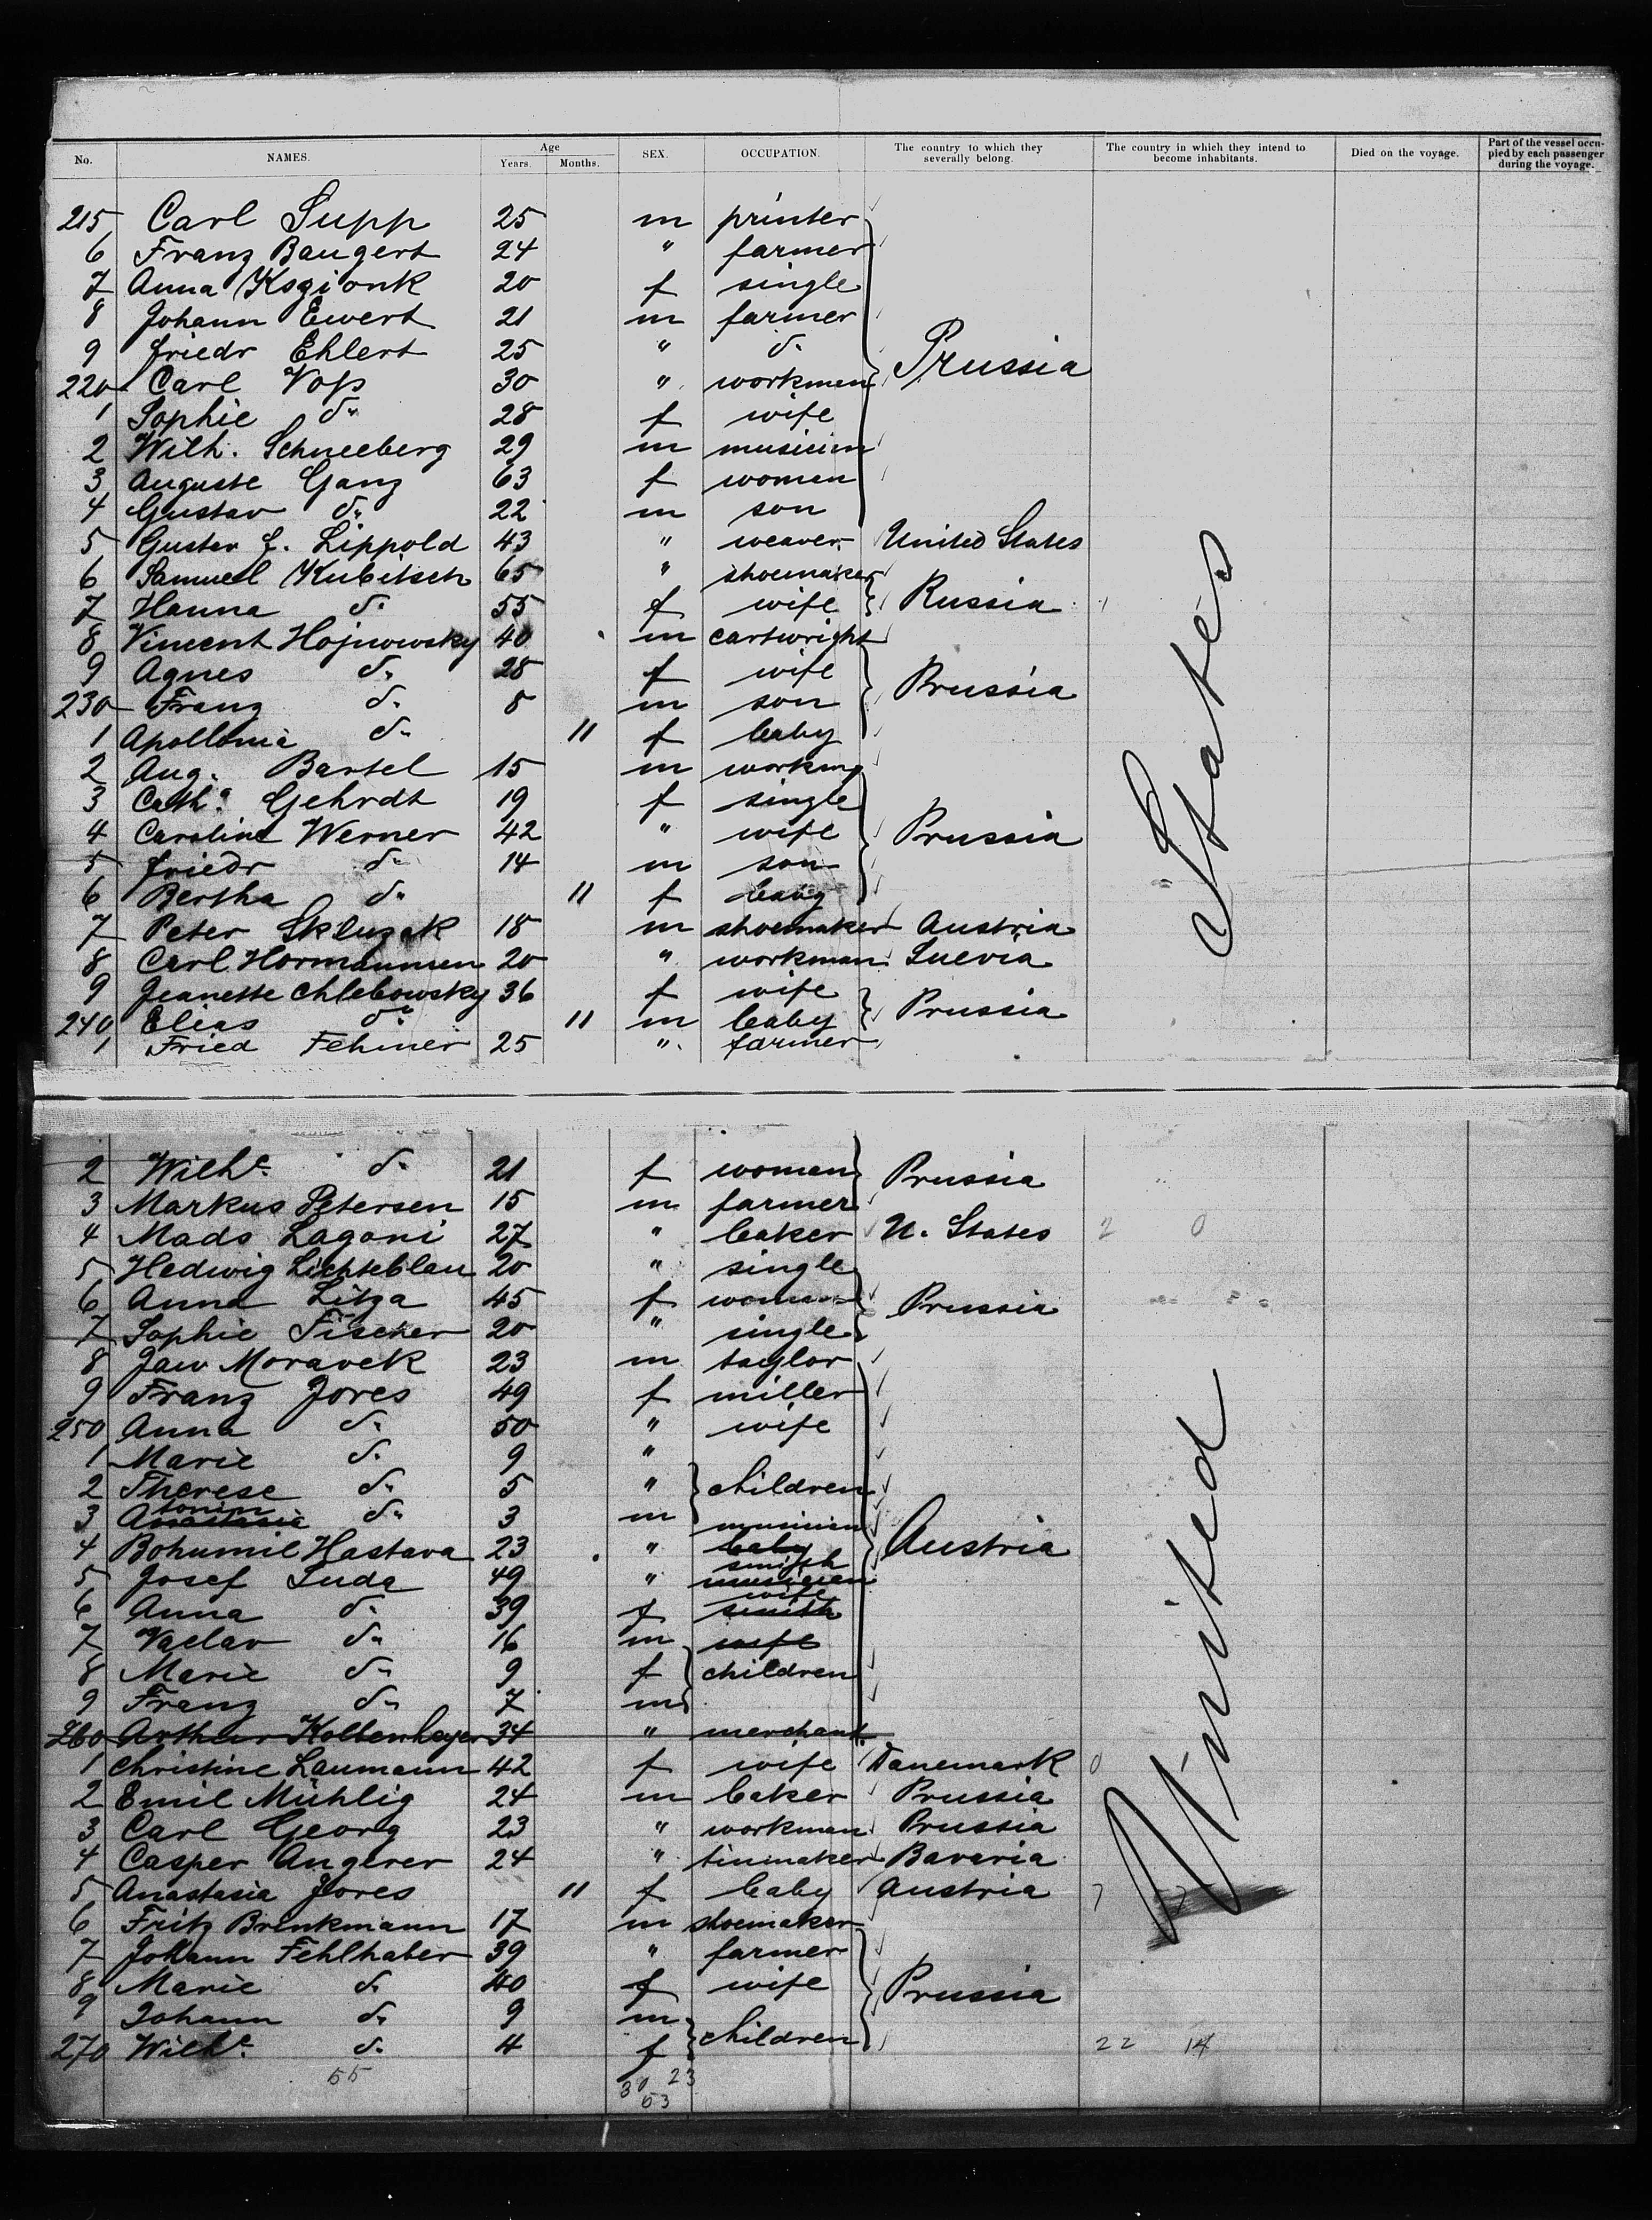 No. NAMES. Age Years. Months. SEX. OCCUPATION. The country to which they severally belong. The country in which they intend to become inhabitants. Died on the voyage. Part of the vessel occupied by each passenger during the voyage.
215 Carl Supp 25 m printer
6 Franz Baugert 24 " farmer
7 Anna Ksgionk 20 f single
8 Johann Ewert 21 m farmer
9 Friedr Ehlert 25 " do
220 Carl Voss 30 " workmen Prussia
1 Sophie do 28 f wife
2 Wilh. Schneeberg 29 m musician
3 Auguste Ganz 63 f women
4 Gustav do 22 m son
5 Gustav J. Lippold 43 " weaver United States
6 Samuel Kubitsch 65 " shoemaker
7 Hanna do 55 f wife Russia
8 Vincent Hojnowsky 40 m cartwright
9 Agnes do 28 f wife
230 Franz do 8 m son Prussia
1 Apollonia do 11 f baby
2 Aug. Bartel 15 m working
3 Catha. Gehrdt 19 f single
4 Caroline Werner 42 " wife Prussia
5 Friedr do 14 m son
6 Bertha do 11 f baby
7 Peter Skluzak 18 m shoemaker Austria
8 Carl Hormannsen 20 " workman Suevia
9 Jeanette Chlebowsky 36 f wife
240 Elias do 11 m baby Prussia
1 Fried Fehmer 25 " farmer
2 Wilhe. do 21 f women Prussia
3 Markus Petersen 15 m farmer
4 Mads Lagoni 27 " baker U. States 2 0
5 Hedwig Lichteblau 20 " single
6 Anna Litza 45 f woman Prussia
7 Sophie Fischer 20 " single
8 Jaw Moravek 23 m taylor
9 Franz Jores 49 f miller
250 Anna do 50 " wife
1 Marie do 9 "
2 Therese do 5 " children
3 Antonin do 3 m
4 Bohumil Hastava 23 " baby musician Austria
5 Josef Suda 49 " musigian smith
6 Anna do 39 f smith wife
7 Vaclav do 16 m wife
8 Marie do 9 f children
9 Franz do 7 m
260 Arthur Koltenheyer 34 " merchant
1 Christine Laumann 42 f wife Danemark 0
2 Emil Mühlig 24 m baker Prussia
3 Carl Georg 23 " workman Prussia
4 Casper Angerer 24 " tinmaker Bavaria
5 Anastasia Jores 11 f baby Austria
6 Fritz Brinkmann 17 m shoemaker
7 Johann Fehlhaber 39 " farmer
8 Marie do 40 f wife Prussia
9 Johann do 9 m
270 Wilhe. do 4 f children 22 14
55 30 23
53
United States